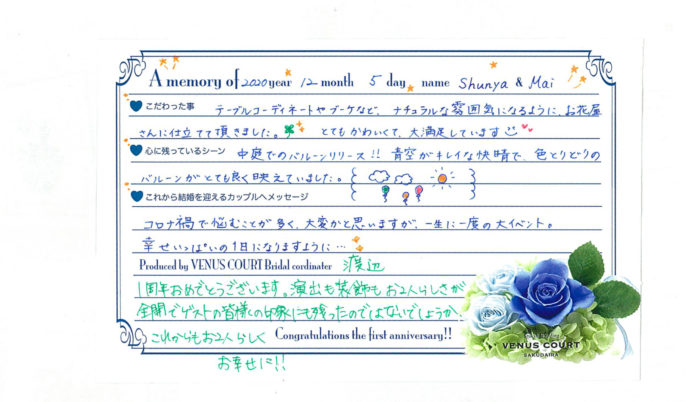 A memory of 2020 year 12 month 5 day name Shunya & Mai
こだわった事 テーブルコーディネートやブーケなど、ナチュラルな雰囲気になるように、お花屋
さんに仕立てて頂きました。 とてもかわいくて、大満足しています
心に残っているシーン 中庭でのバルーンリリース!! 青空がキレイな快晴で、色とりどりの
バルーンがとても良く映えていました。
これから結婚を迎えるカップルへメッセージ
コロナ禍で悩むことが多く、大変かと思いますが、一生に一度の大イベント。
幸せいっぱいの1日になりますように…
Produced by VENUS COURT Bridal cordinater 渡辺
1周年おめでとうございます。演出も装飾もお2人らしさが
全開でゲストの皆様の印象にも残ったのではないでしょうか。
これからもお2人らしく Congratulations the first anniversary!!
お幸せに!!
VENUS COURT
SAKUDAIRA